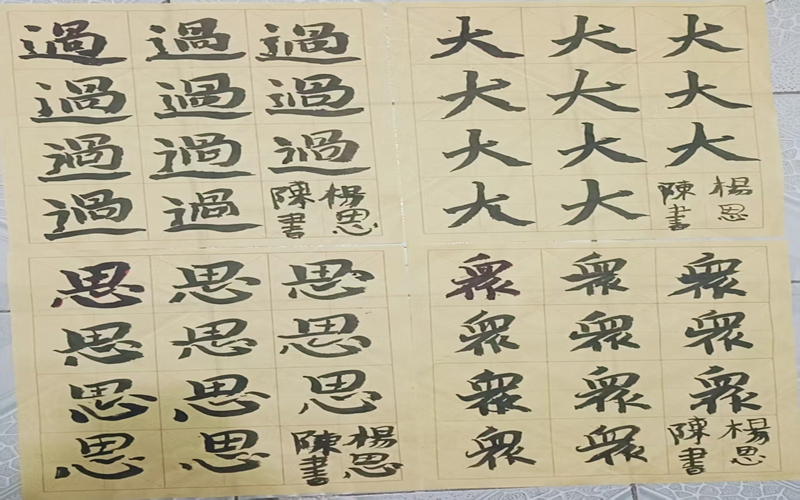 過過過
過過過
過過過
過過
楊思
陳書
大大大
大大大
大大大
大大
楊思
陳書
思思思
思思思
思思思
思思
楊思
陳書
衆衆衆
衆衆衆
衆衆衆
衆衆
楊思
陳書